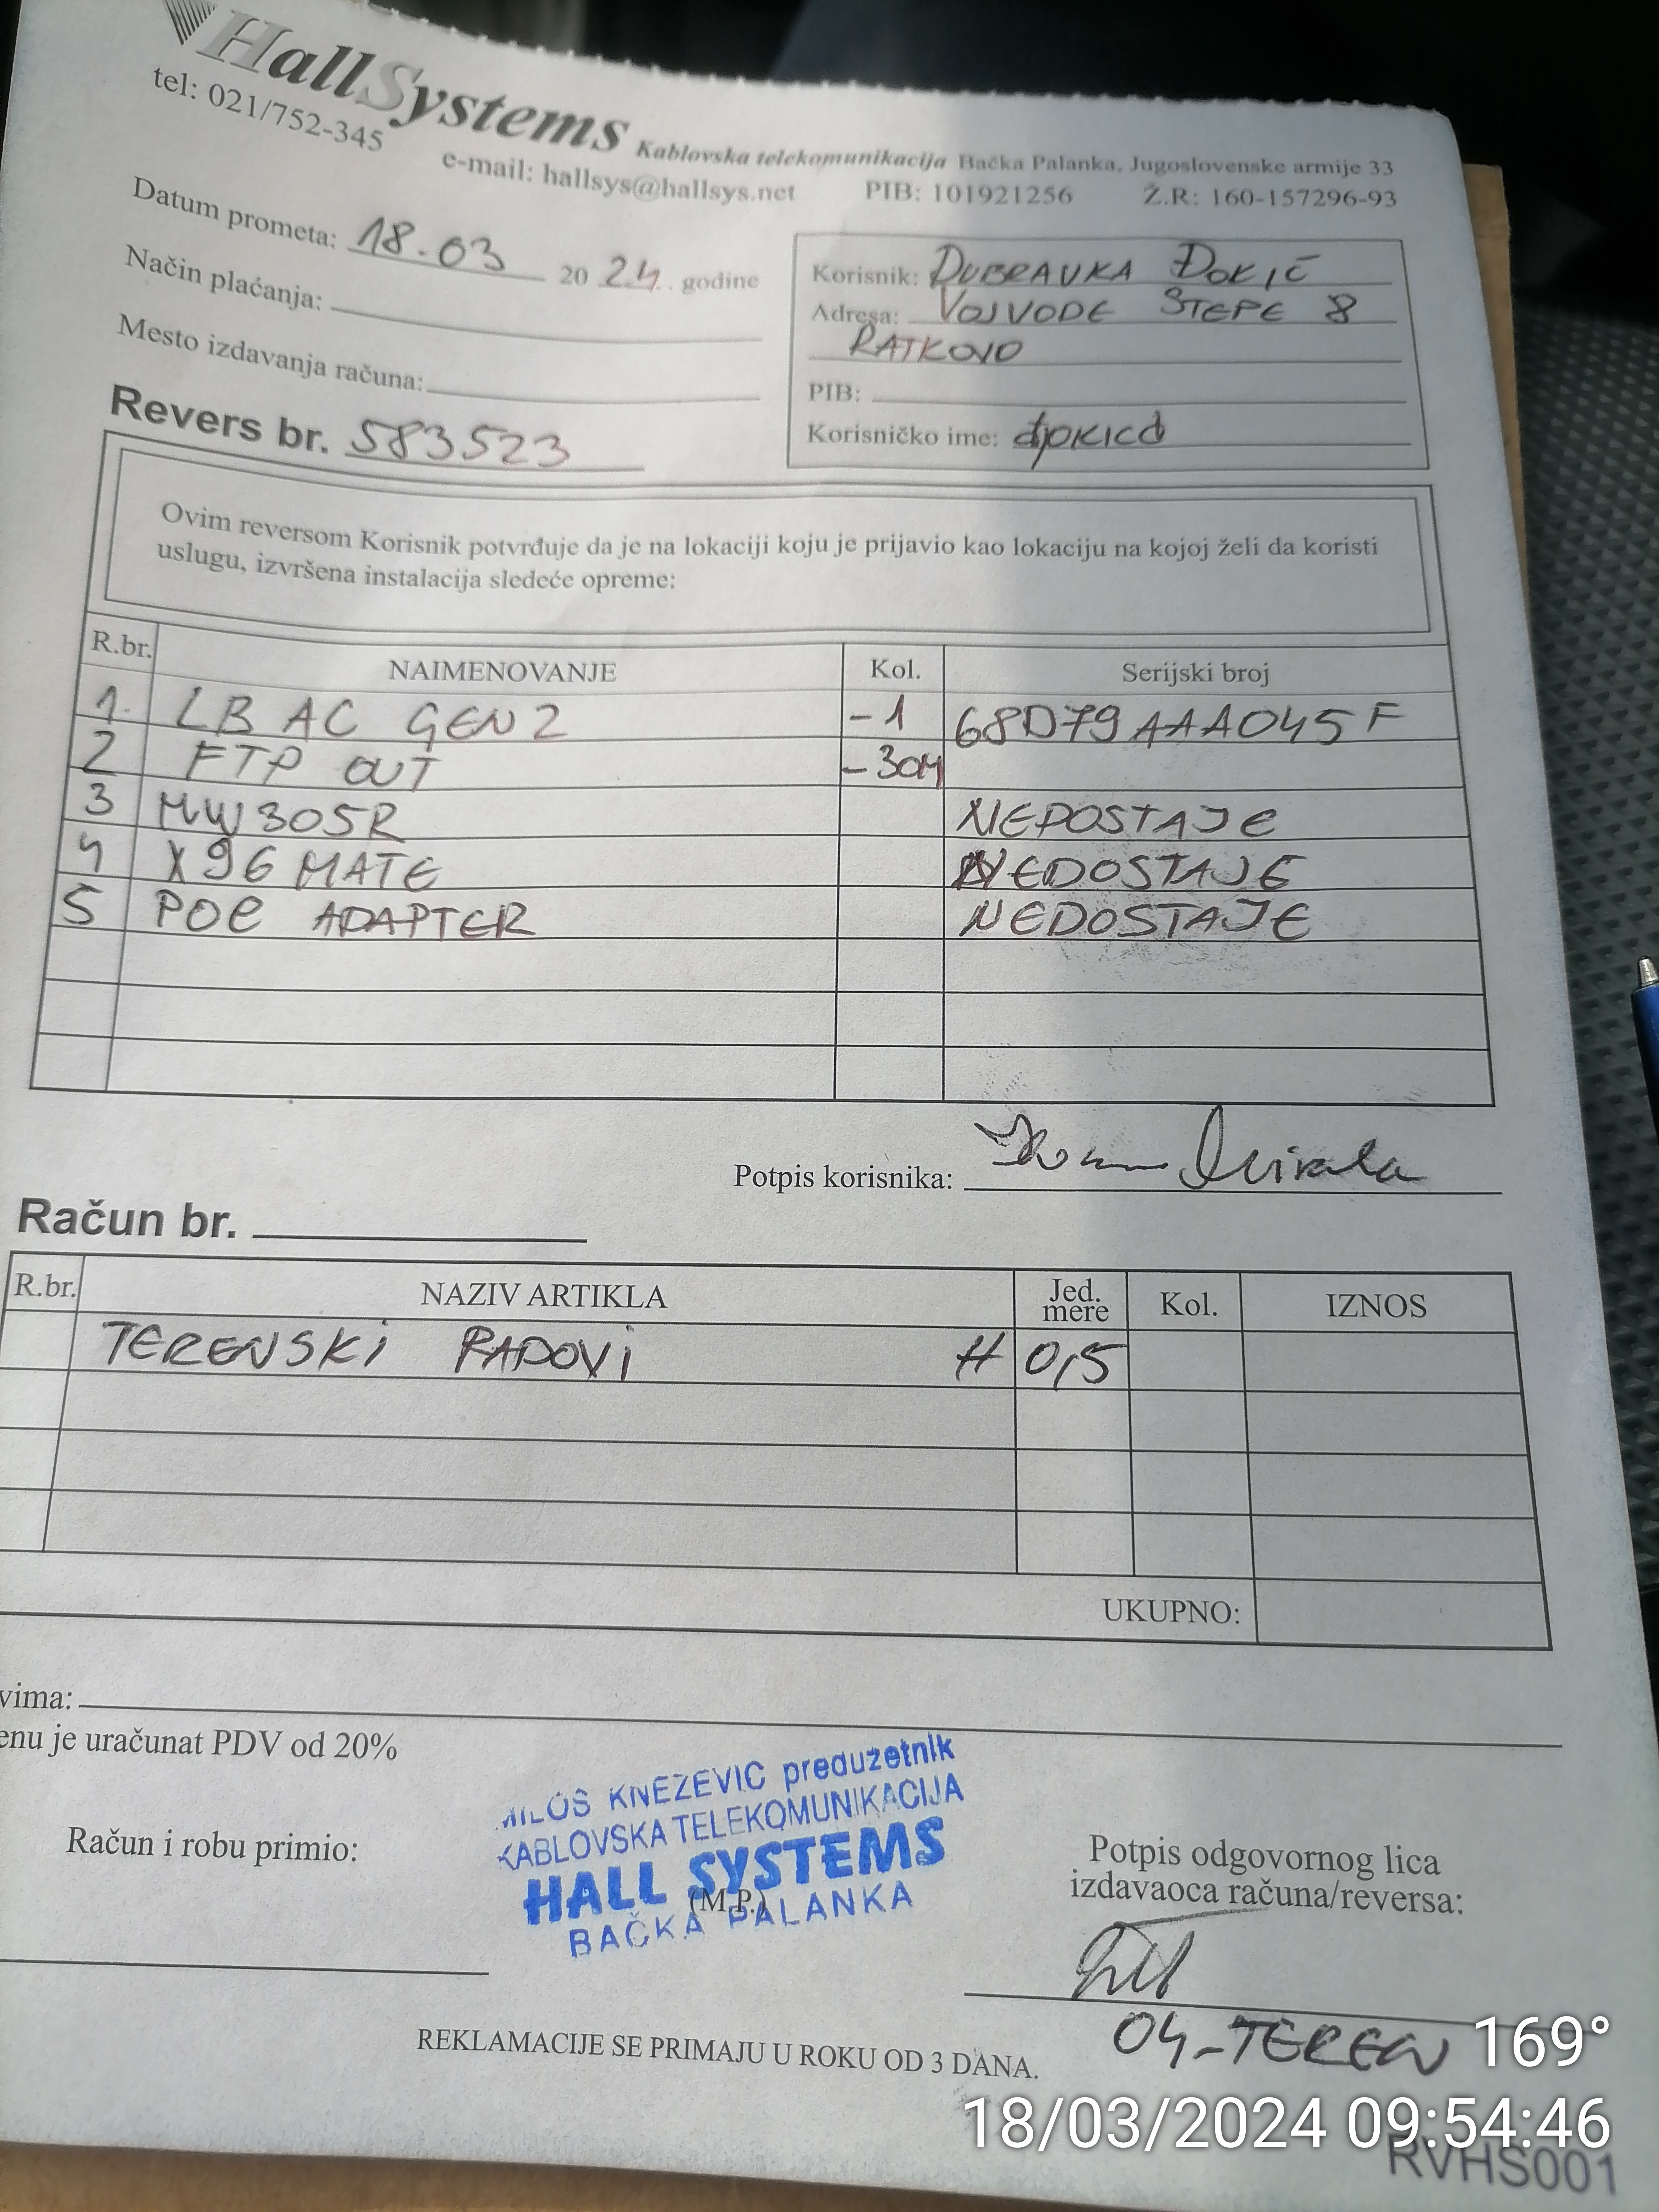 HallSystems Kablovska telekomunikacija Bačka Palanka, Jugoslovenske armije 33
tel: 021/752-345
e-mail: hallsys@hallsys.net PIB: 101921256 Ž.R: 160-157296-93
Datum prometa: 18.03 2024. godine
Način plaćanja:
Mesto izdavanja računa:
Revers br. 583523
Korisnik: DUBRAVKA ĐOKIĆ
Adresa: VOJVODE STEPE 8
RATKOVO
PIB:
Korisničko ime: djokicd
Ovim reversom Korisnik potvrđuje da je na lokaciji koju je prijavio kao lokaciju na kojoj želi da koristi
uslugu, izvršena instalacija sledeće opreme:
R.br. NAIMENOVANJE Kol. Serijski broj
1. LB AC GEN2 -1 68D79AAA045F
2 FTP OUT -30M
3 MW305R NEDOSTAJE
4 X96 MATE NEDOSTAJE
5 POE ADAPTER NEDOSTAJE
Potpis korisnika:
Račun br.
R.br. NAZIV ARTIKLA Jed. mere Kol. IZNOS
TERENSKI RADOVI H 0,5
UKUPNO:
vima:
enu je uračunat PDV od 20%
MILOŠ KNEZEVIC preduzetnik
KABLOVSKA TELEKOMUNIKACIJA
HALL SYSTEMS
(M.P.)
BAČKA PALANKA
Račun i robu primio:
Potpis odgovornog lica
izdavaoca računa/reversa:
04-TEREN
REKLAMACIJE SE PRIMAJU U ROKU OD 3 DANA.
169°
18/03/2024 09:54:46
RVHS001